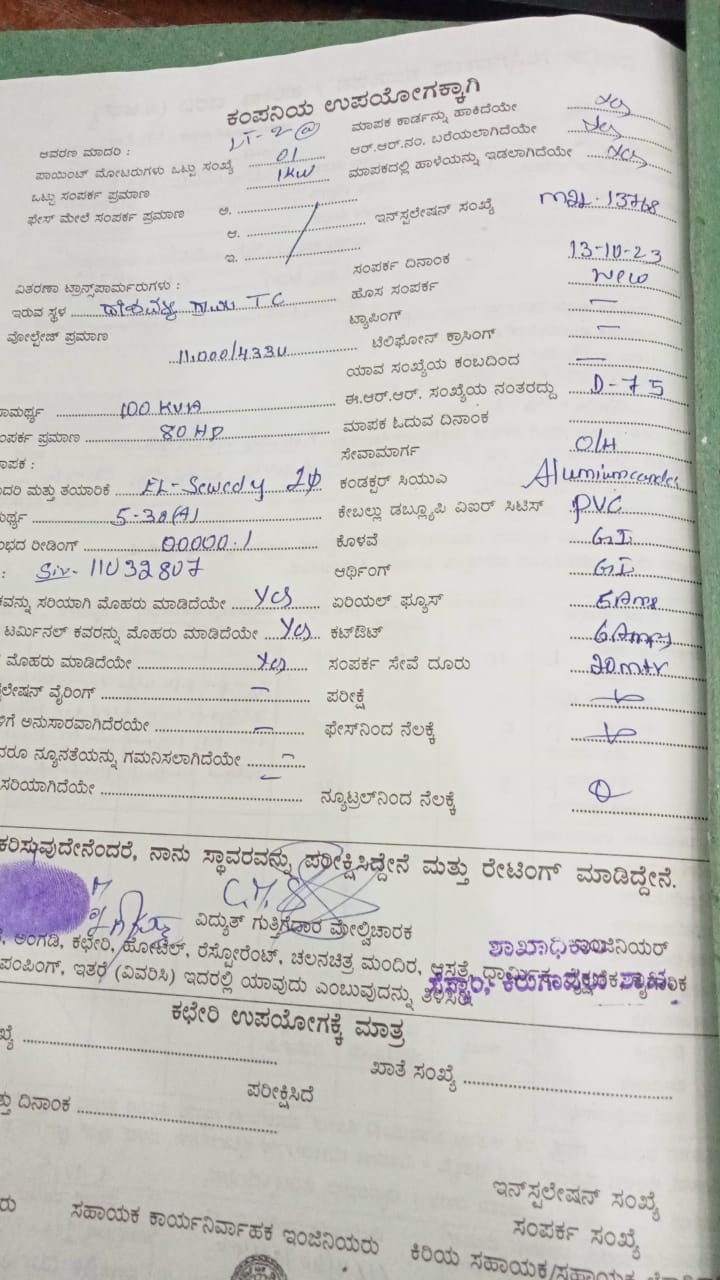 ಕಂಪನಿಯ ಉಪಯೋಗಕ್ಕಾಗಿ
ಆವರಣ ಮಾದರಿ : LT-2@ ಮಾಪಕ ಕಾರ್ಡನ್ನು ಹಾಕಿದೆಯೇ yes
ಪಾಯಿಂಟ್ ಮೋಟರುಗಳು ಒಟ್ಟು ಸಂಖ್ಯೆ 01 ಆರ್.ಆರ್.ನಂ. ಬರೆಯಲಾಗಿದೆಯೇ yes
ಒಟ್ಟು ಸಂಪರ್ಕ ಪ್ರಮಾಣ 1KW ಮಾಪಕದಲ್ಲಿ ಹಾಳೆಯನ್ನು ಇಡಲಾಗಿದೆಯೇ yes
ಫೇಸ್ ಮೇಲೆ ಸಂಪರ್ಕ ಪ್ರಮಾಣ ಅ. ಇನ್‌ಸ್ಪಲೇಷನ್ ಸಂಖ್ಯೆ 13768
ಆ.
ಇ. ಸಂಪರ್ಕ ದಿನಾಂಕ 13-10-23
ವಿತರಣಾ ಟ್ರಾನ್ಸ್‌ಪಾರ್ಮರುಗಳು : ಹೊಸ ಸಂಪರ್ಕ New
ಇರುವ ಸ್ಥಳ TC ಟ್ಯಾಪಿಂಗ್ —
ವೋಲ್ಟೇಜ್ ಪ್ರಮಾಣ 11.000/433V ಟೆಲಿಫೋನ್ ಕ್ರಾಸಿಂಗ್ —
ಯಾವ ಸಂಖ್ಯೆಯ ಕಂಬದಿಂದ —
ಾಮರ್ಥ್ಯ 100 KVA ಈ.ಆರ್.ಆರ್. ಸಂಖ್ಯೆಯ ನಂತರದ್ದು D-75
ಂಪರ್ಕ ಪ್ರಮಾಣ 80 HP ಮಾಪಕ ಓದುವ ದಿನಾಂಕ
ಾಪಕ : ಸೇವಾಮಾರ್ಗ O/H
ಾದರಿ ಮತ್ತು ತಯಾರಿಕೆ EL-Sewedy 1φ ಕಂಡಕ್ಟರ್ ಸಿಯುಎ
ಮರ್ಥ್ಯ 5-30(A) ಕೇಬಲ್ಲು ಡಬ್ಲ್ಯೂಪಿ ವಿಐರ್ ಸಿಟಿಸ್ PVC
ಂಭದ ರೀಡಿಂಗ್ 00000.1 ಕೊಳವೆ G.I
: 11032807 ಆರ್ಥಿಂಗ್ G.I
ಕವನ್ನು ಸರಿಯಾಗಿ ಮೊಹರು ಮಾಡಿದೆಯೇ Yes ಏರಿಯಲ್ ಫ್ಯೂಸ್
ಟರ್ಮಿನಲ್ ಕವರನ್ನು ಮೊಹರು ಮಾಡಿದೆಯೇ Yes ಕಟ್‌ಔಟ್ 6Amps
ಮೊಹರು ಮಾಡಿದೆಯೇ Yes ಸಂಪರ್ಕ ಸೇವೆ ದೂರು 20mtr
ಲೇಷನ್ ವೈರಿಂಗ್ — ಪರೀಕ್ಷೆ
ಳಿಗೆ ಅನುಸಾರವಾಗಿದೆರಯೇ — ಫೇಸ್‌ನಿಂದ ನೆಲಕ್ಕೆ
ದರೂ ನ್ಯೂನತೆಯನ್ನು ಗಮನಿಸಲಾಗಿದೆಯೇ
ಸರಿಯಾಗಿದೆಯೇ ನ್ಯೂಟ್ರಲ್‌ನಿಂದ ನೆಲಕ್ಕೆ
ಕರಿಸುವುದೇನೆಂದರೆ, ನಾನು ಸ್ಥಾವರವನ್ನು ಪರೀಕ್ಷಿಸಿದ್ದೇನೆ ಮತ್ತು ರೇಟಿಂಗ್ ಮಾಡಿದ್ದೇನೆ.
ವಿದ್ಯುತ್ ಗುತ್ತಿಗೆದಾರ ಮೇಲ್ವಿಚಾರಕ
ಶಾಖಾಧಿಕಾರಿ
ಅಂಗಡಿ, ಕಛೇರಿ, ಹೋಟೆಲ್, ರೆಸ್ಟೋರೆಂಟ್, ಚಲನಚಿತ್ರ ಮಂದಿರ, ಆಸ್ಪತ್ರೆ,
ಪಂಪಿಂಗ್, ಇತರೆ (ವಿವರಿಸಿ) ಇದರಲ್ಲಿ ಯಾವುದು ಎಂಬುವುದನ್ನು ತಿಳಿಸಿರಿ
ಕಛೇರಿ ಉಪಯೋಗಕ್ಕೆ ಮಾತ್ರ
ಖ್ಯೆ ಖಾತೆ ಸಂಖ್ಯೆ
ಪರೀಕ್ಷಿಸಿದೆ
ತ್ತು ದಿನಾಂಕ
ಇನ್‌ಸ್ಪಲೇಷನ್ ಸಂಖ್ಯೆ
ಸಂಪರ್ಕ ಸಂಖ್ಯೆ
ರು ಸಹಾಯಕ ಕಾರ್ಯನಿರ್ವಾಹಕ ಇಂಜಿನಿಯರು ಕಿರಿಯ ಸಹಾಯಕ/ಸಹಾಯಕ